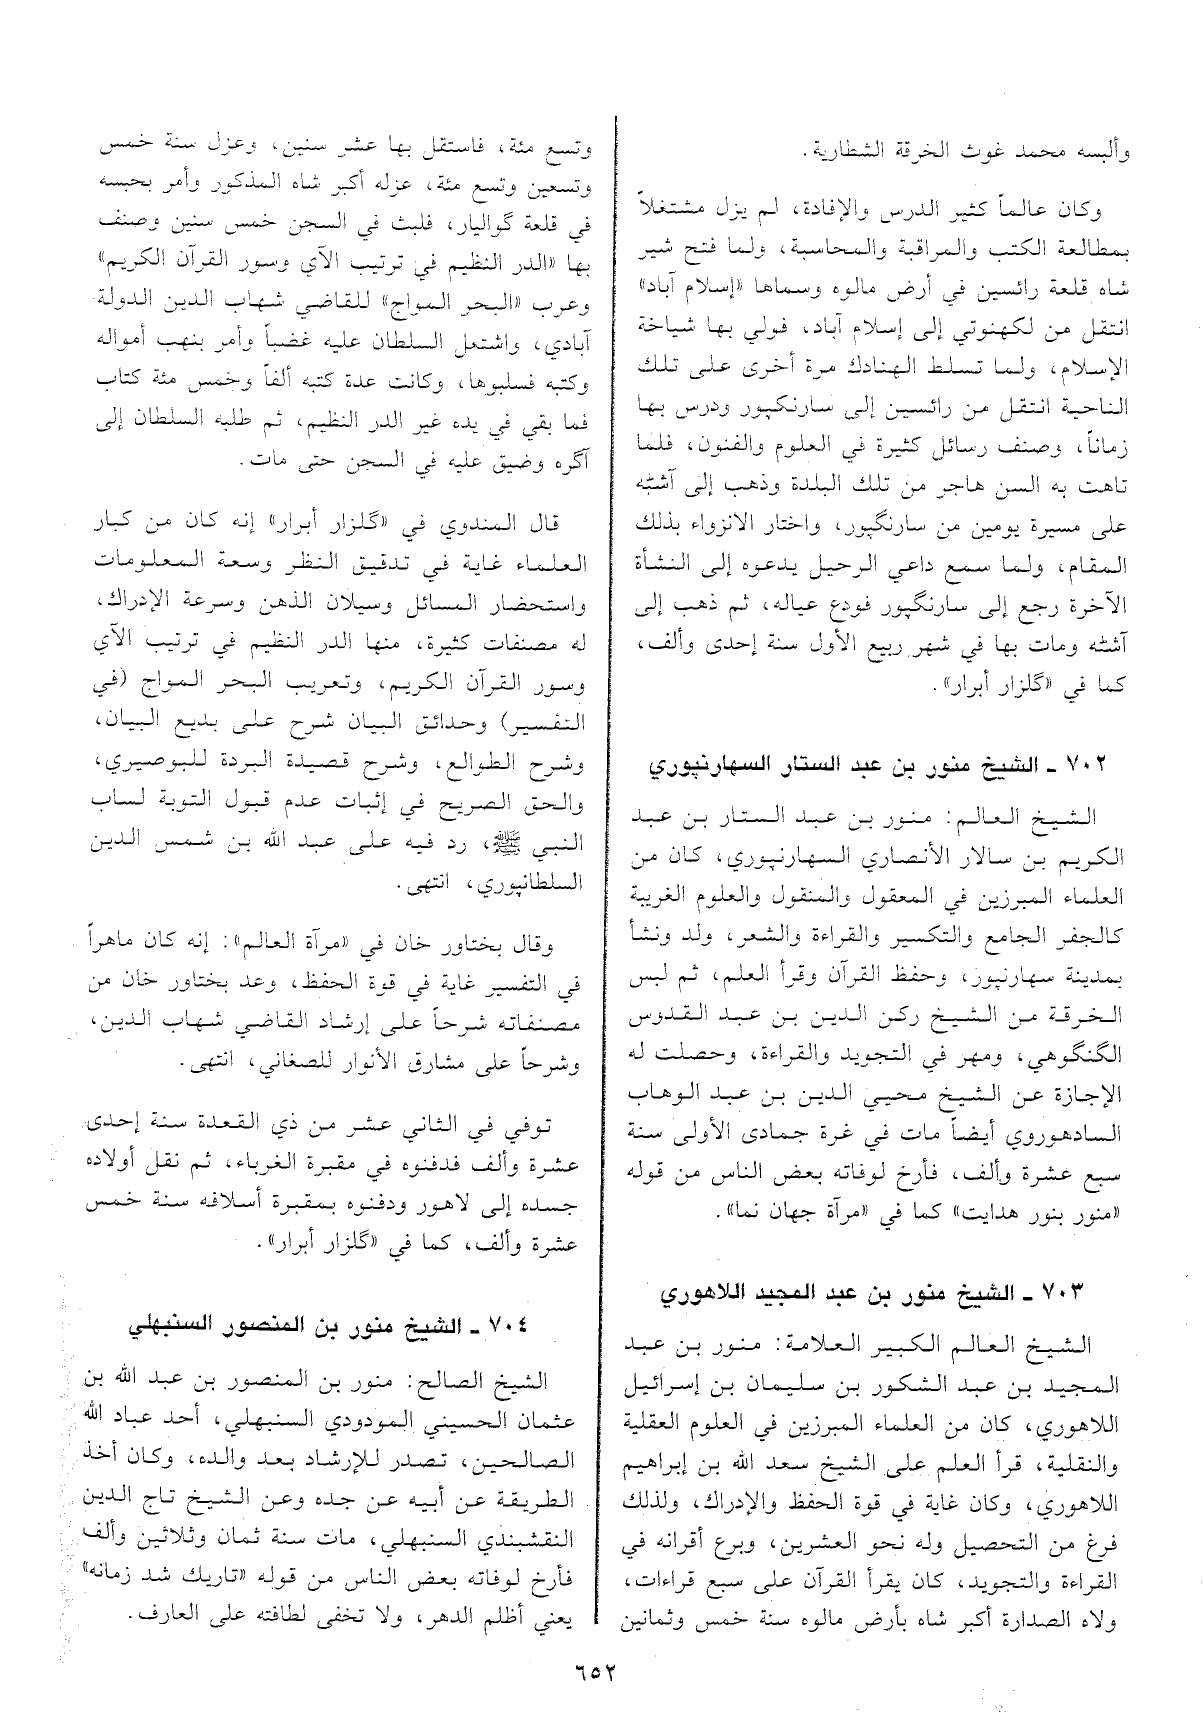 وألبسه محمد غوث الخرقة الشطارية.
وكان عالماً كثير الدرس والإفادة، لم يزل مشتغلاً
بمطالعة الكتب والمراقبة والمحاسبة، ولما فتح شير
شاه قلعة رائسين في أرض مالوه وسماها «إسلام آباد»
انتقل من لكهنوتي إلى إسلام آباد، فولي بها شياخة
الإسلام، ولما تسلط الهنادك مرة أخرى على تلك
الناحية انتقل من رائسين إلى سارنكپور ودرس بها
زماناً، وصنف رسائل كثيرة في العلوم والفنون، فلما
تاهت به السن هاجر من تلك البلدة وذهب إلى آشته
على مسيرة يومين من سارنگپور، واختار الانزواء بذلك
المقام، ولما سمع داعي الرحيل يدعوه إلى النشأة
الآخرة رجع إلى سارنگپور فودع عياله، ثم ذهب إلى
آشته ومات بها في شهر ربيع الأول سنة إحدى وألف،
كما في «گلزار أبرار».
٧٠٢ ـ الشيخ منور بن عبد الستار السهارنپوري
الشيخ العالم: منور بن عبد الستار بن عبد
الكريم بن سالار الأنصاري السهارنپوري، كان من
العلماء المبرزين في المعقول والمنقول والعلوم الغريبة
كالجفر الجامع والتكسير والقراءة والشعر، ولد ونشأ
بمدينة سهارنپور، وحفظ القرآن وقرأ العلم، ثم لبس
الخرقة من الشيخ ركن الدين بن عبد القدوس
الگنگوهي، ومهر في التجويد والقراءة، وحصلت له
الإجازة عن الشيخ محيي الدين بن عبد الوهاب
السادهوروي أيضاً مات في غرة جمادى الأولى سنة
سبع عشرة وألف، فأرخ لوفاته بعض الناس من قوله
«منور بنور هدايت» كما في «مرآة جهان نما».
٧٠٣ ـ الشيخ منور بن عبد المجيد اللاهوري
الشيخ العالم الكبير العلامة: منور بن عبد
المجيد بن عبد الشكور بن سليمان بن إسرائيل
اللاهوري، كان من العلماء المبرزين في العلوم العقلية
والنقلية، قرأ العلم على الشيخ سعد الله بن إبراهيم
اللاهوري، وكان غاية في قوة الحفظ والإدراك، ولذلك
فرغ من التحصيل وله نحو العشرين، وبرع أقرانه في
القراءة والتجويد، كان يقرأ القرآن على سبع قراءات،
ولاه الصدارة أكبر شاه بأرض مالوه سنة خمس وثمانين
وتسع مئة، فاستقل بها عشر سنين، وعزل سنة خمس
وتسعين وتسع مئة، عزله أكبر شاه المذكور وأمر بحبسه
في قلعة گواليار، فلبث في السجن خمس سنين وصنف
بها «الدر النظيم في ترتيب الآي وسور القرآن الكريم»
وعرب «البحر المواج» للقاضي شهاب الدين الدولة
آبادي، واشتعل السلطان عليه غضباً وأمر بنهب أمواله
وكتبه فسلبوها، وكانت عدة كتبه ألفاً وخمس مئة كتاب
فما بقي في يده غير الدر النظيم، ثم طلبه السلطان إلى
آگره وضيق عليه في السجن حتى مات.
قال المندوي في «گلزار أبرار» إنه كان من كبار
العلماء غاية في تدقيق النظر وسعة المعلومات
واستحضار المسائل وسيلان الذهن وسرعة الإدراك،
له مصنفات كثيرة، منها الدر النظيم في ترتيب الآي
وسور القرآن الكريم، وتعريب البحر المواج (في
التفسير) وحدائق البيان شرح على بديع البيان،
وشرح الطوالع، وشرح قصيدة البردة للبوصيري،
والحق الصريح في إثبات عدم قبول التوبة لساب
النبي ﷺ، رد فيه على عبد الله بن شمس الدين
السلطانپوري، انتهى.
وقال بختاور خان في «مرآة العالم»: إنه كان ماهراً
في التفسير غاية في قوة الحفظ، وعد بختاور خان من
مصنفاته شرحاً على إرشاد القاضي شهاب الدين،
وشرحاً على مشارق الأنوار للصغاني، انتهى.
توفي في الثاني عشر من ذي القعدة سنة إحدى
عشرة وألف فدفنوه في مقبرة الغرباء، ثم نقل أولاده
جسده إلى لاهور ودفنوه بمقبرة أسلافه سنة خمس
عشرة وألف، كما في «گلزار أبرار».
٧٠٤ ـ الشيخ منور بن المنصور السنبهلي
الشيخ الصالح: منور بن المنصور بن عبد الله بن
عثمان الحسيني المودودي السنبهلي، أحد عباد الله
الصالحين، تصدر للإرشاد بعد والده، وكان أخذ
الطريقة عن أبيه عن جده وعن الشيخ تاج الدين
النقشبندي السنبهلي، مات سنة ثمان وثلاثين وألف
فأرخ لوفاته بعض الناس من قوله «تاريك شد زمانه»
يعني أظلم الدهر، ولا تخفى لطافته على العارف.
٦٥٢